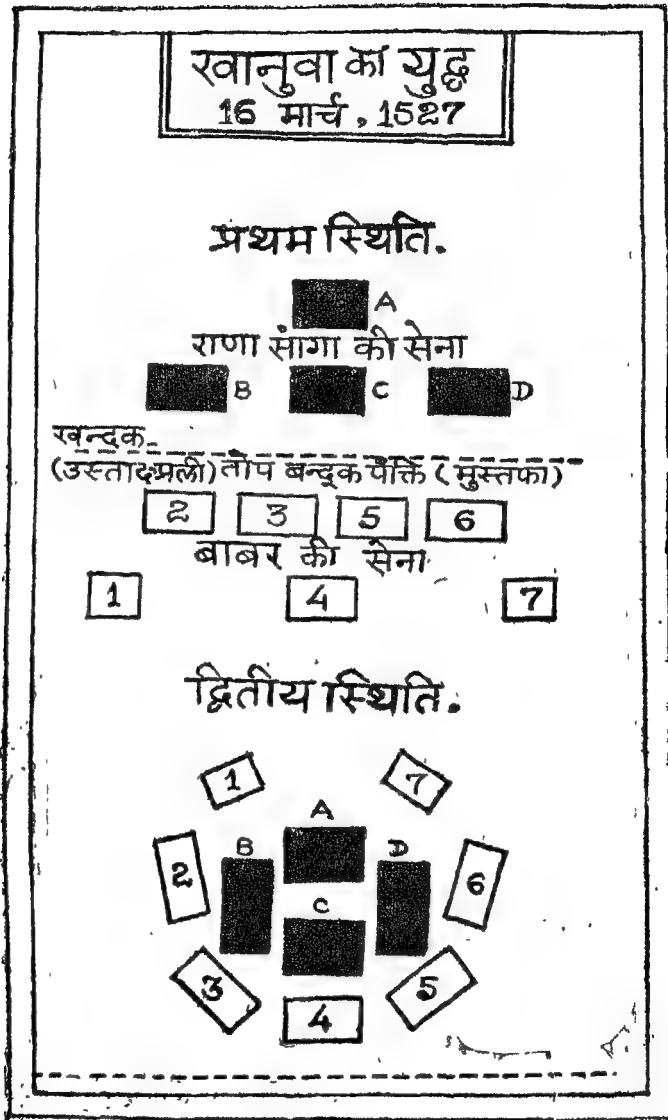 खानुवा का युद्ध
16 मार्च, 1527
प्रथम स्थिति.
A
राणा सांगा की सेना
B C D
खन्दक
(उस्तादअली) तोप बन्दूक पंक्ति (मुस्तफा)
2 3 5 6
बाबर की सेना
1 4 7
द्वितीय स्थिति.
1 7
A
B D
2 6
C
3 5
4